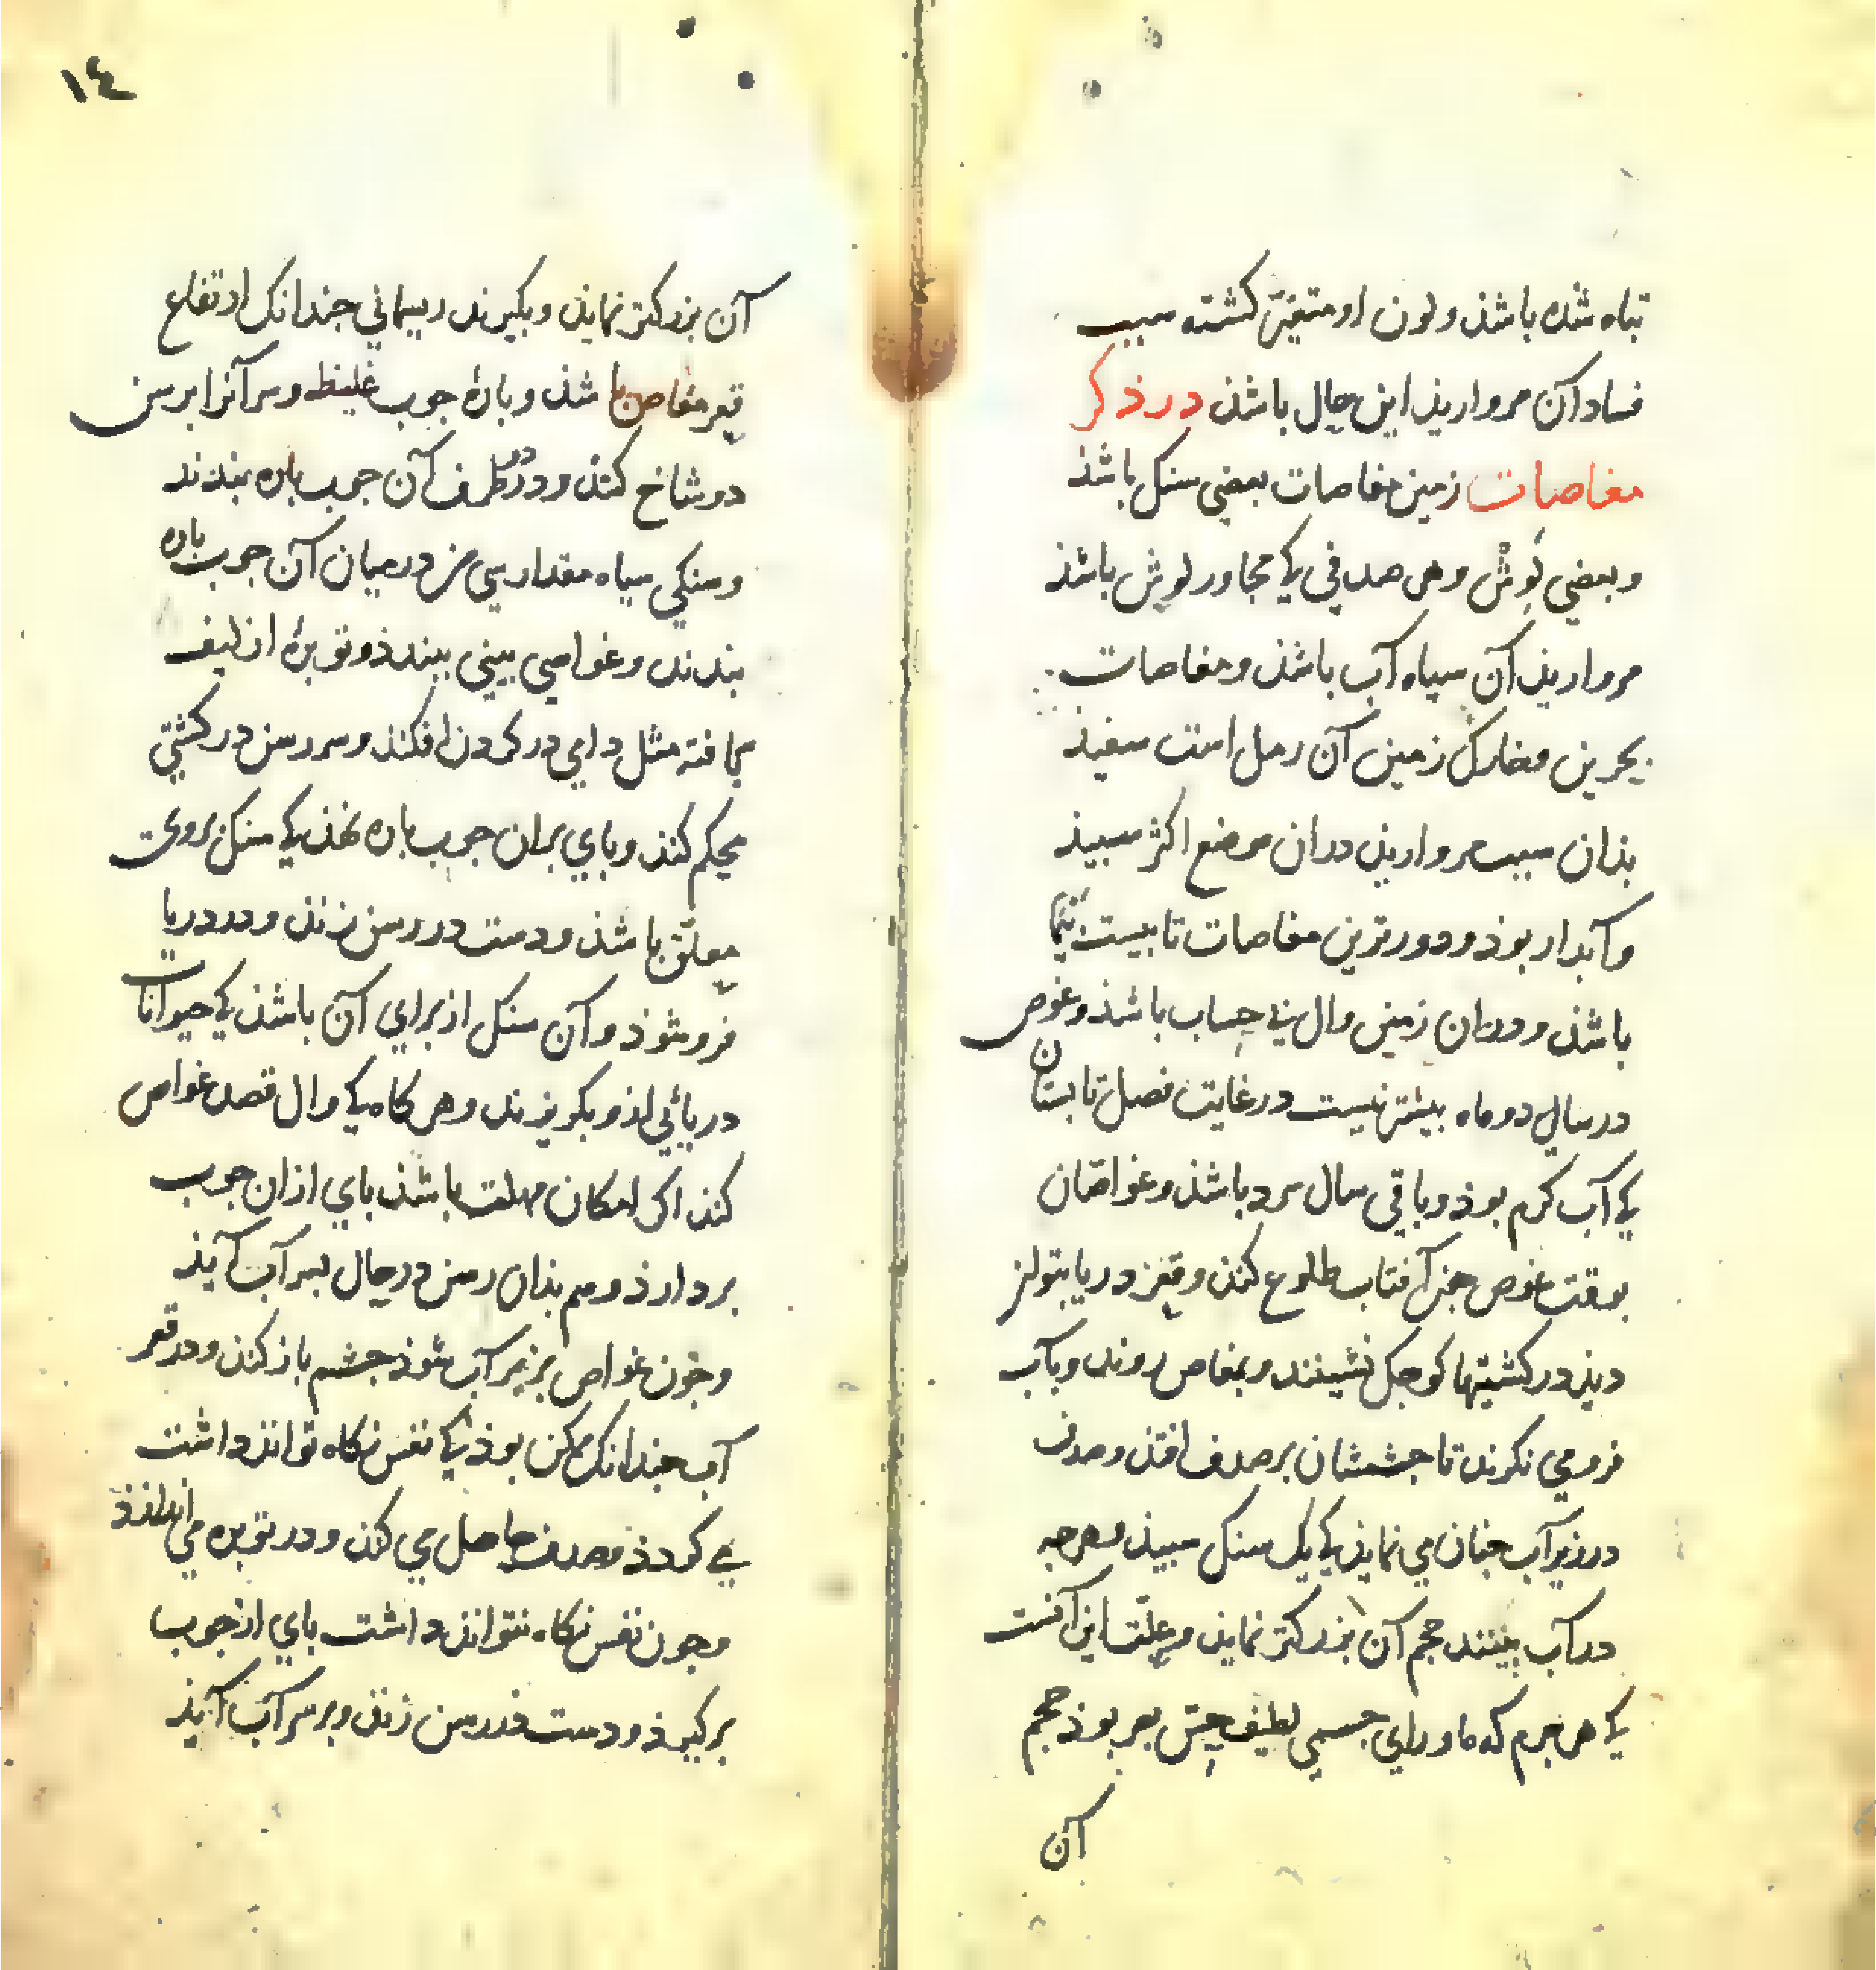 تباه شذه باشذ ولون او متغیّر کشته سبب
فساد آن مروارید این حال باشذ در ذکر
مغاصات زمین مغاصات بعضی سنک باشذ
وبعضی لوش وهر صدفی کی مجاور لوش باشذ
مروارید آن سیاه آب باشذ ومغاصات
بحرین وخارک زمین آن رمل است سفیذ
بذان سبب مروارید دران موضع اکثر سبیذ
وآبدار بوذ ودورترین مغاصات تا بیست
باشذ ودران زمین وال بی حساب باشذ وغوص
در سال دو ماه بیشتر نیست در غایت فصل تابستان
کی آب کرم بوذ وباقی سال سرد باشذ وغواصان
بوقت غوص جون آفتاب طلوع کند وقعر دریا بتوان
دید در کشتیها کوجک نشینند وبمغاص روند وبآب
فرو می نکرند تا جشمشان بر صدف افتذ وصدف
در زیر آب جنان می نماید کی یک سنک سبیذ وهرجه
در آب بینند حجم آن بزرکتر نماید وعلّت این آنست
کی هر جرم که ماورای جسمی لطیف بیش بصر بوذ حجم
آن
١٤
آن بزرکتر نماید وبکیرند ریسمانی جندانک ارتفاع
قعر مغاص باشذ وبارهٔ جوب غلیظ وسر آنرا برسن
دو شاخ کنند ودر دو طرف آن جوب باره بندند
وسنکی سیاه مقدار سی من در میان آن جوب باره
بندند وغواصی بینی ببندد وتوبرهٔ از لیف
بافته مثل دامی در کردن افکند وسر رسن در کشتی
محکم کنند وبای بران جوب باره نهذ کی سنک بروی
معلّق باشذ ودست در رسن زند ودر دریا
فرو شوذ وآن سنک از برای آن باشذ کی حیوانات
دریائی ازو بکریزند وهر کاه کی وال قصد غواص
کند اکر امکان مهلت باشذ بای ازان جوب
بردارذ وهم بذان رسن در حال بسر آب آیذ
وجون غواص بزیر آب شوذ جشم باز کند ودر قعر
آب جندانک ممکن بوذ کی نفس نکاه تواند داشت
می کردذ وصدف حاصل می کند ودر توبره می اندازذ
وجون نفس نکاه نتواند داشت بای از جوب
برکیرذ ودست در رسن زند وبر سر آب آیذ